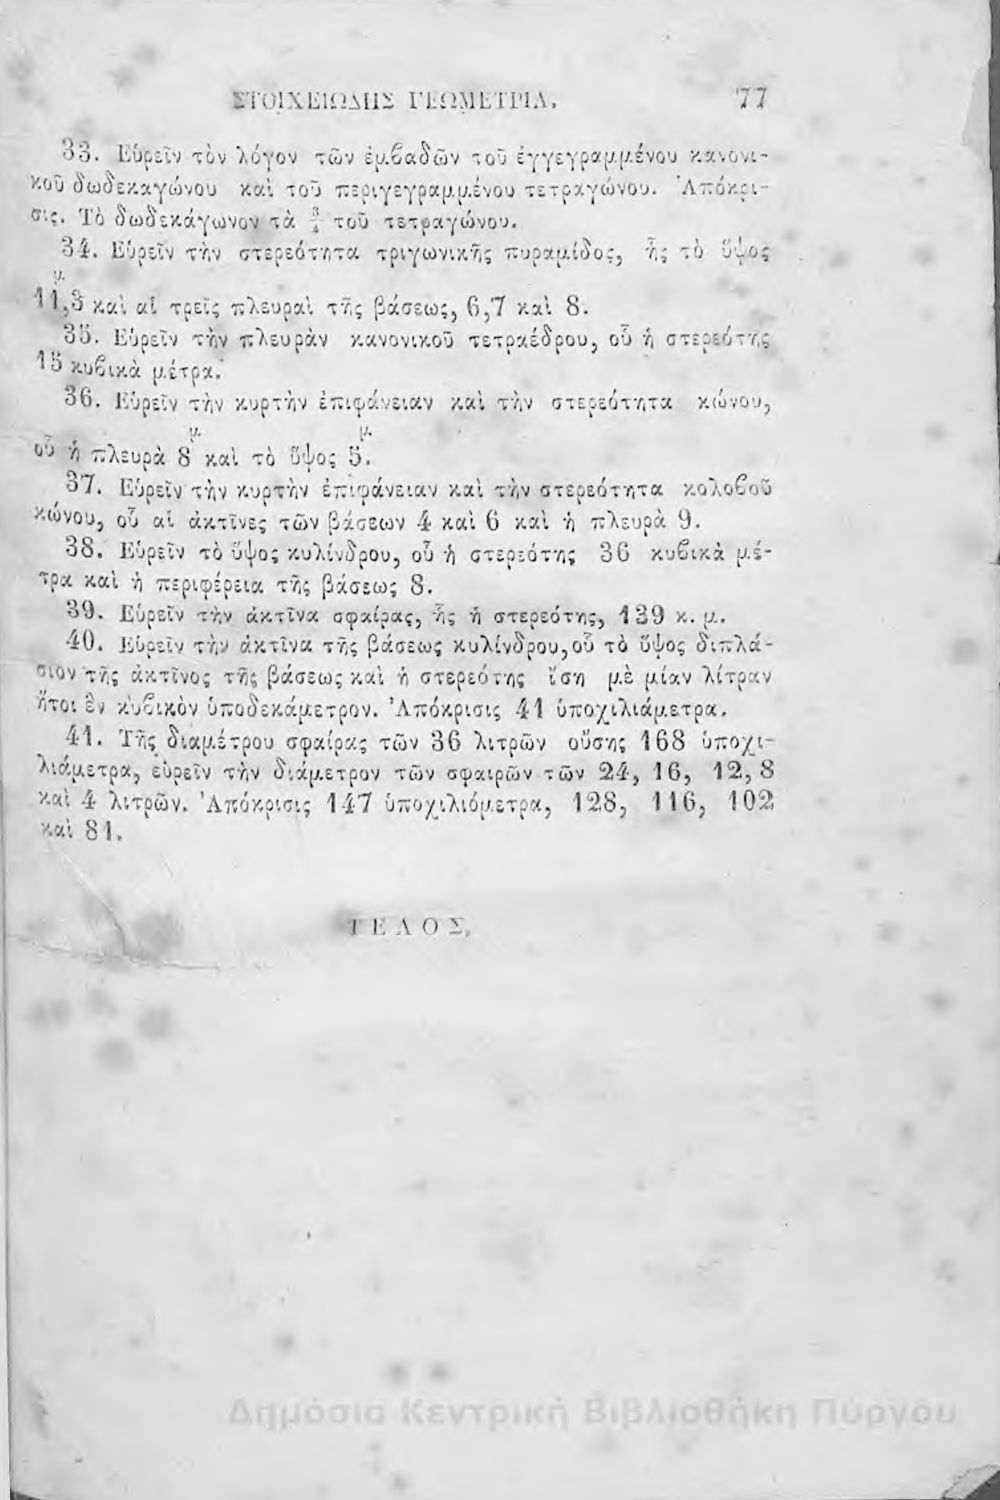 ΣΤΟΙΧΕΙΩΔΗΣ ΓΕΩΜΕΤΡΙΑ. 77
33. Εὑρεῖν τὸν λόγον τῶν ἐμβαδῶν τοῦ ἐγγεγραμμένου κανονι-
κοῦ δωδεκαγώνου καὶ τοῦ περιγεγραμμένου τετραγώνου. Ἀπόκρι-
σις. Τὸ δωδεκάγωνον τὰ ¾ τοῦ τετραγώνου.
34. Εὑρεῖν τὴν στερεότητα τριγωνικῆς πυραμίδος, ἧς τὸ ὕψος
μ.
11,3 καὶ αἱ τρεῖς πλευραὶ τῆς βάσεως, 6,7 καὶ 8.
35. Εὑρεῖν τὴν πλευρὰν κανονικοῦ τετραέδρου, οὗ ἡ στερεότης
15 κυβικὰ μέτρα.
36. Εὑρεῖν τὴν κυρτὴν ἐπιφάνειαν καὶ τὴν στερεότητα κώνου,
μ. μ.
οὗ ἡ πλευρὰ 8 καὶ τὸ ὕψος 5.
37. Εὑρεῖν τὴν κυρτὴν ἐπιφάνειαν καὶ τὴν στερεότητα κολοβοῦ
κώνου, οὗ αἱ ἀκτῖνες τῶν βάσεων 4 καὶ 6 καὶ ἡ πλευρὰ 9.
38. Εὑρεῖν τὸ ὕψος κυλίνδρου, οὗ ἡ στερεότης 36 κυβικὰ μέ-
τρα καὶ ἡ περιφέρεια τῆς βάσεως 8.
39. Εὑρεῖν τὴν ἀκτῖνα σφαίρας, ἧς ἡ στερεότης, 139 κ. μ.
40. Εὑρεῖν τὴν ἀκτῖνα τῆς βάσεως κυλίνδρου,οὗ τὸ ὕψος διπλά-
σιον τῆς ἀκτῖνος τῆς βάσεως καὶ ἡ στερεότης ἴση μὲ μίαν λίτραν
ἤτοι ἓν κυβικὸν ὑποδεκάμετρον. Ἀπόκρισις 41 ὑποχιλιάμετρα.
41. Τῆς διαμέτρου σφαίρας τῶν 36 λιτρῶν οὔσης 168 ὑποχι-
λιάμετρα, εὑρεῖν τὴν διάμετρον τῶν σφαιρῶν τῶν 24, 16, 12, 8
καὶ 4 λιτρῶν. Ἀπόκρισις 147 ὑποχιλιόμετρα, 128, 116, 102
καὶ 81.
ΤΕΛΟΣ.
Δημόσια Κεντρική Βιβλιοθήκη Πύργου